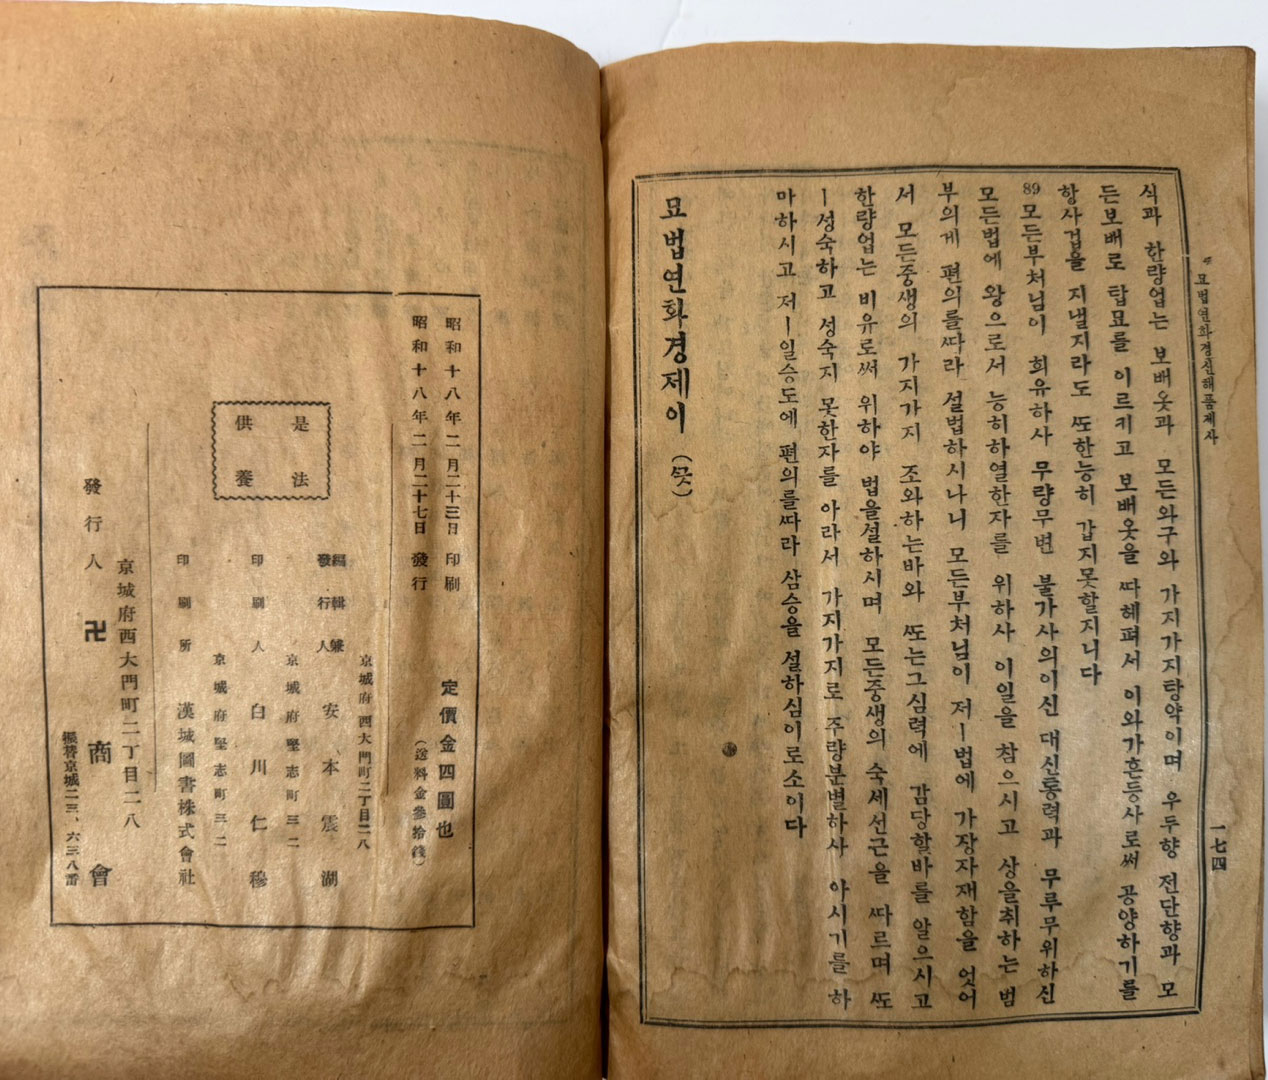 묘법연화경신해품제사
一七四
식과 한량업는 보배옷과 모든와구와 가지가지탕약이며 우두향 전단향과 모
든보배로 탑묘를 이르키고 보배옷을 따헤펴서 이와가흔등사로써 공양하기를
항사겁을 지낼지라도 또한능히 갑지못할지니다
89 모든부처님이 희유하사 무량무변 불가사의이신 대신통력과 무루무위하신
모든법에 왕으로서 능히하열한자를 위하사 이일을 참으시고 상을취하는 범
부의게 편의를따라 설법하시나니 모든부처님이 저ㅣ법에 가장자재함을 엇어
서 모든중생의 가지가지 조와하는바와 또는그심력에 감당할바를 알으시고
한량업는 비유로써 위하야 법을설하시며 모든중생의 숙세선근을 따르며 또
ㅣ성숙하고 성숙지 못한자를 아라서 가지가지로 주량분별하사 아시기를 하
마하시고 저ㅣ일승도에 편의를따라 삼승을 설하심이로소이다
묘법연화경제이 (끗)
昭和十八年二月二十三日 印刷
昭和十八年二月二十七日 發行
定價金四圓也
(送料金參拾錢)
是法
供養
京城府西大門町二丁目二八
編輯兼
發行人 安本震湖
京城府堅志町三二
印刷人 白川仁穆
京城府堅志町三二
印刷所 漢城圖書株式會社
京城府西大門町二丁目二八
發行人 卍商會
振替京城二三、六三八番